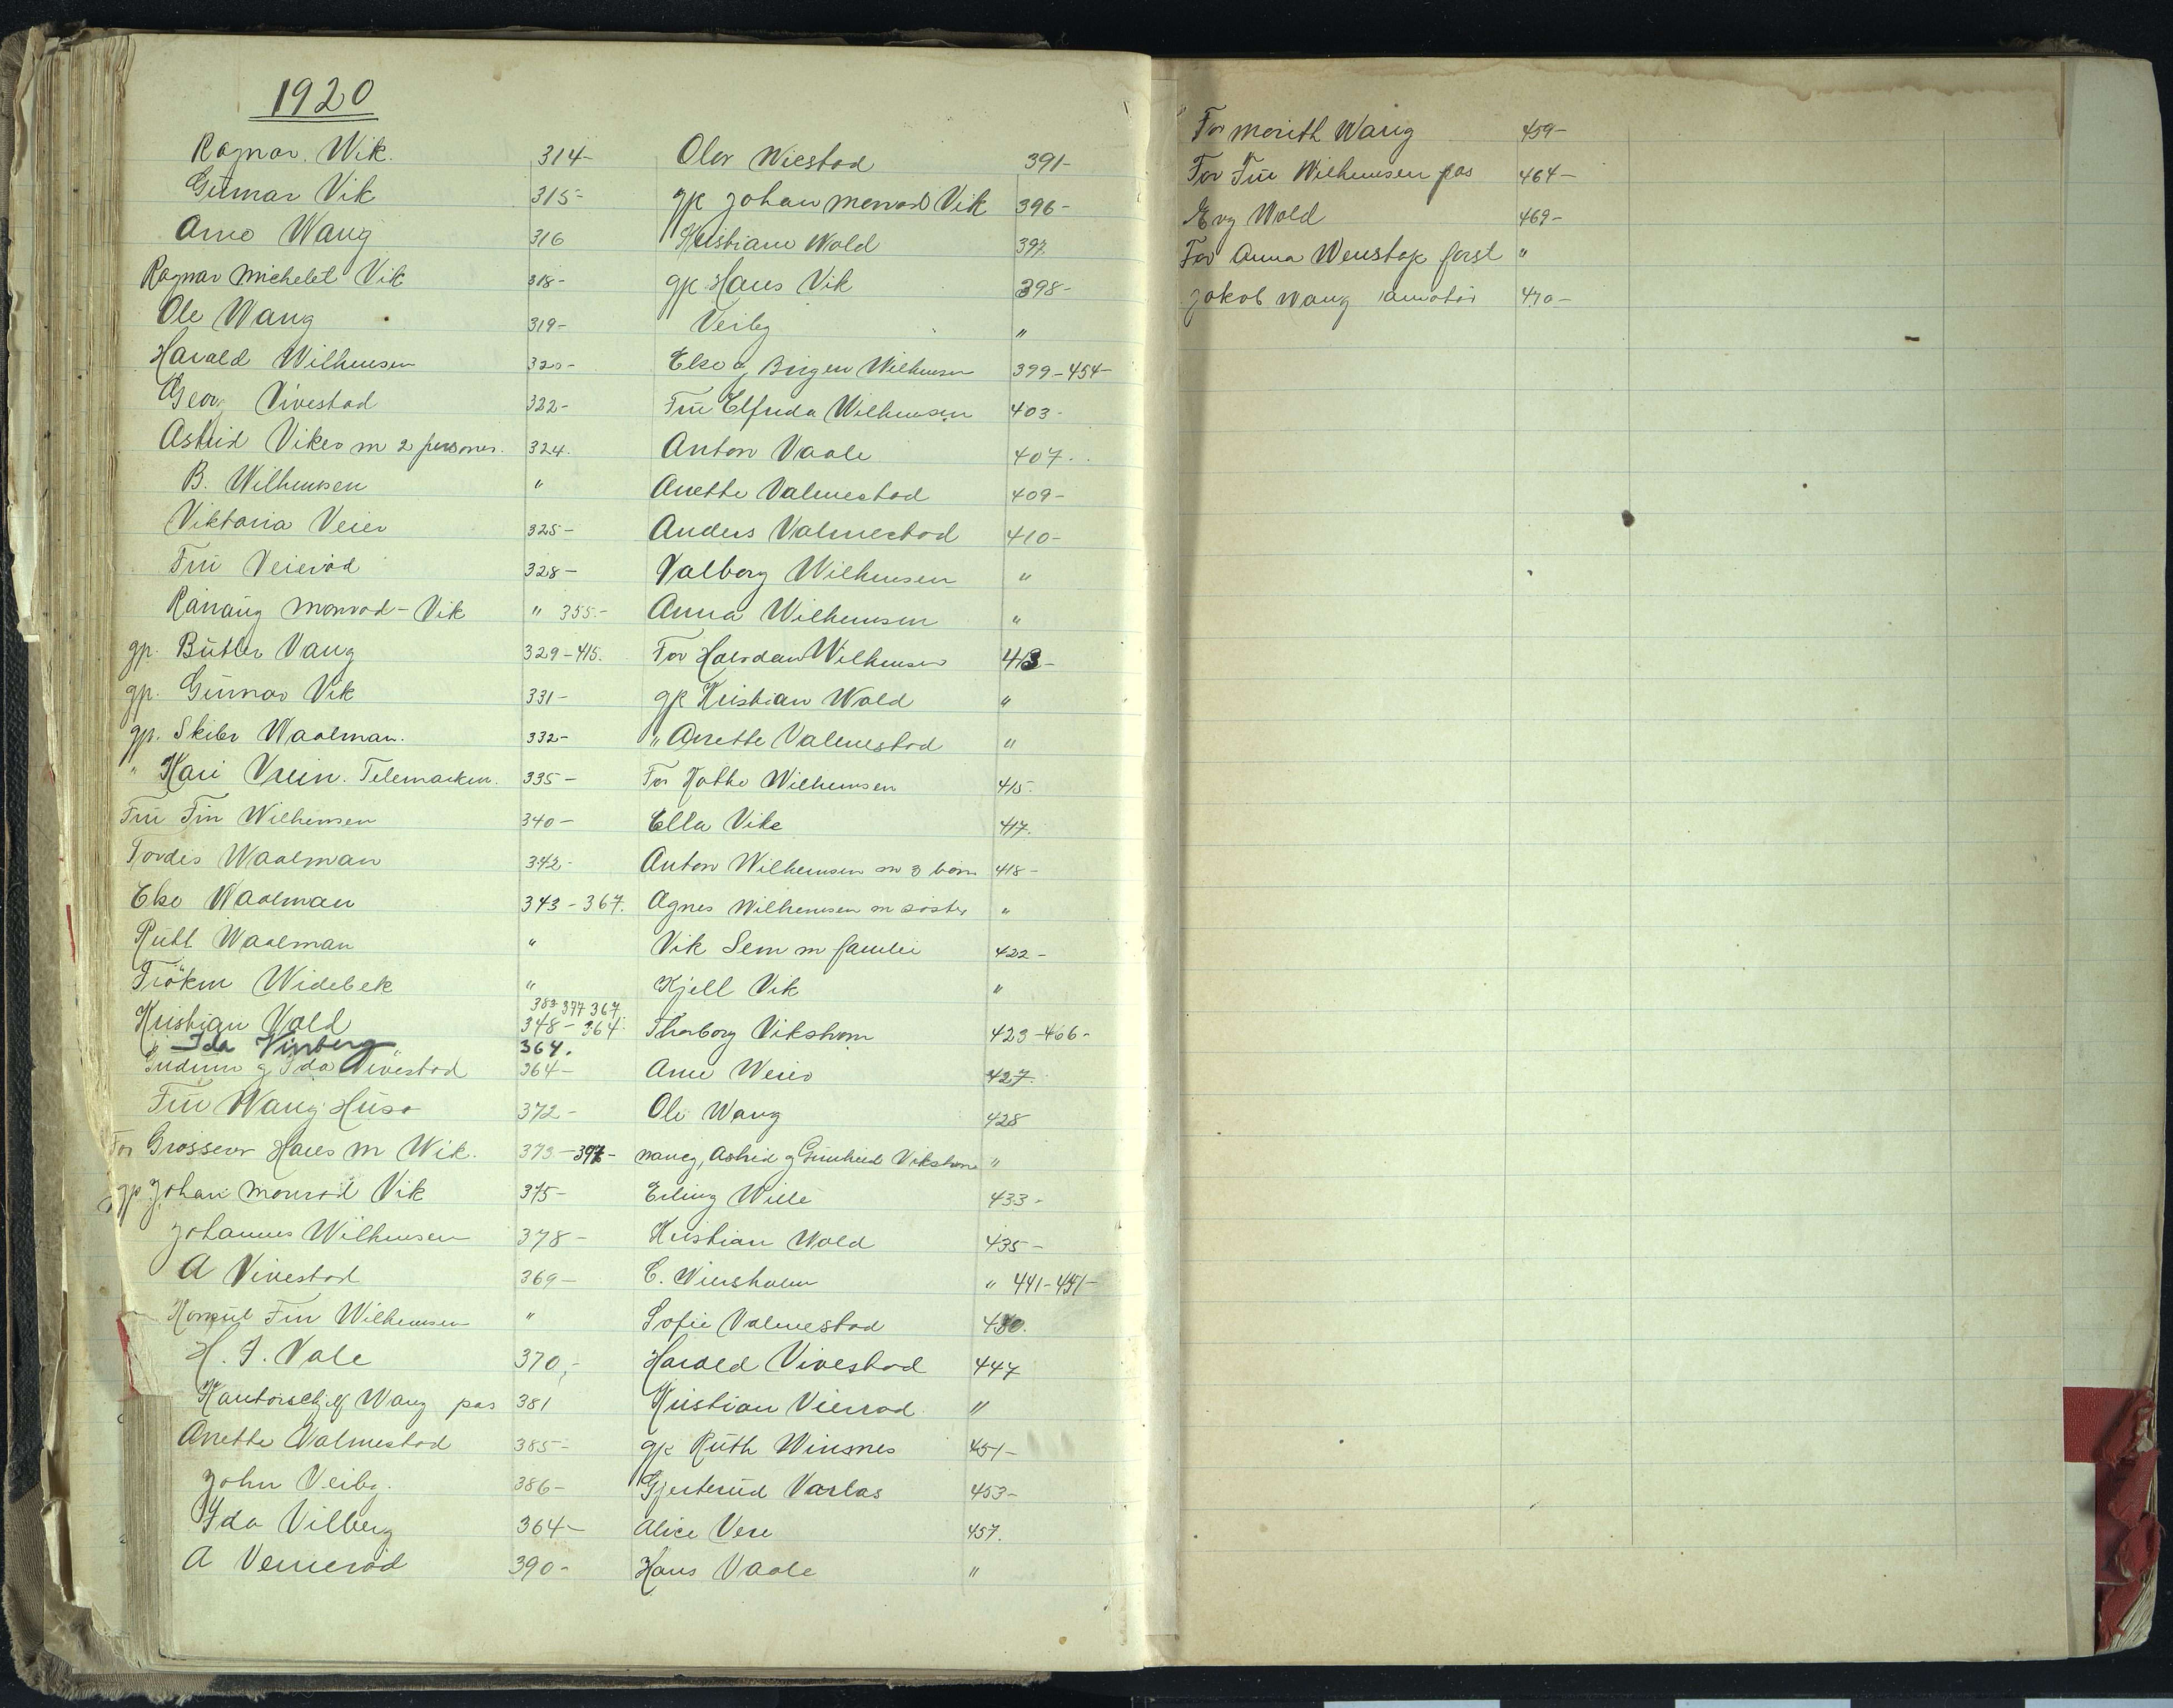 1920
Ragnar. Wik. 314-
Gunnar Vik 315-
Arne Wang 316
Ragnar Michelet Vik 318-
Ole Wang 319-
Harald Wilhemsen 320-
Georg Vivestad 322-
Astrid Vikers m 2 personer. 324.
B. Wilhemsen "
Viktoria Veier 325-
Fru Veieröd 328-
Ranaug Monrad-Vik " 355-
gp. Butler Vang 329-415.
gp. Gunnar Vik 331-
gp. Skiber Waalman. 332-
" Kari Vrein. Telemarken. 335-
Fru Fin Wilhemsen 340-
Tordis Waalman 342-
Else Waalman 343-367.
Ruth Waalman "
Frökin Widebek "
383 377 367
Kristian Vold 348-364
" Ida Vinberg 364.
Gudrun g Ida Vivestad 364-
Fru Wang Huso 372-
For Grosserer Hans M Wik. 373-397-
gp Johan Monrad Vik 375-
Johannes Wilhemsen 378-
A Vivestad 369-
Konsul Fin Wilhemsen "
H. J. Vale 370,-
Kantorschef Wang pas 381
Anette Valmestad 385-
John Veiby. 386-
Ida Vilberg 364-
A Vemeröd 390-
Olav Wiestad 391-
gp Johan Monrad Vik 396-
Kristiane Wold 397.
gp Hans Vik 398-
Veiby "
Else g Birger Wilhemsen 399-454-
Fru Elfrida Wilhemsen 403-
Anton Vaale 407.
Anette Valmestad 409-
Anders Valmestad 410-
Valborg Wilhemsen "
Anna Wilhemsen "
For Halvdan Wilhemsen 413-
gp Kristian Wold "
" Anette Valmestad "
For Kathe Wilhemsen 415-
Ella Vike 417.
Anton Wilhemsen m 3 börn 418-
Agnes Wilhemsen m söster "
Vik Sem m familie 422-
Kjell Vik "
Thorborg Vikstrøm 423-466-
Arne Weier 427.
Ole Wang 428
Nancy, Astrid g Gunhild Vikstrøm "
Erling Wille 433-
Kristian Wold 435-
C. Wiersholm " 441-451-
Sofie Valmestad 430.
Harald Vivestad 447
Kristian Vierrod "
gp Ruth Winsnes 451-
Gjerterud Varlas 453-
Alice Vere 457.
Hans Vaale "
For Merith Wang 459-
For Fru Wilhemsen pas 464-
Erg Wold 469-
For Anna Wenstøp forst "
Jakob Wang amatör 470-